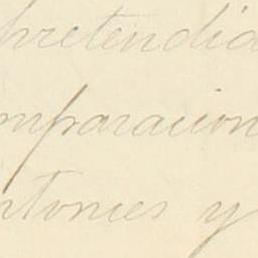 pretendid
mparacion
ntonces y